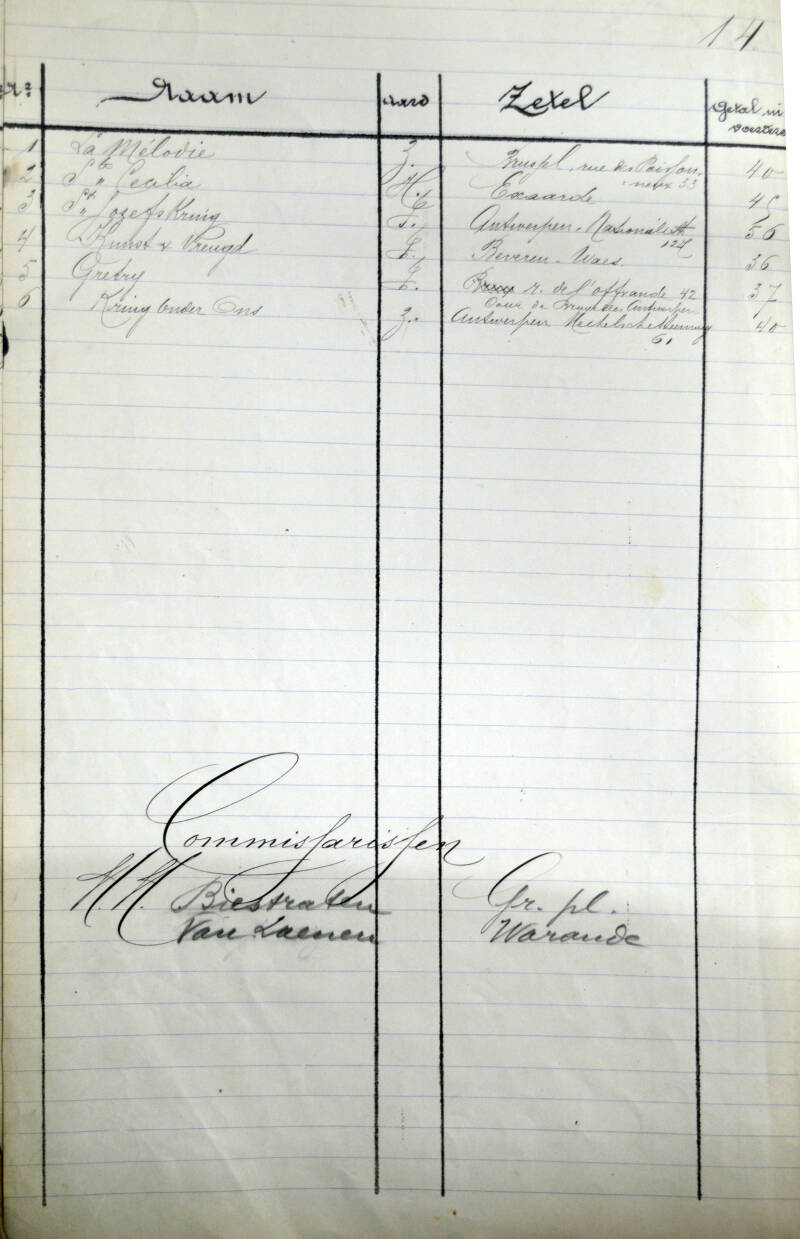 14
Nr: Naam aard Zetel Getal uit
voerders
1 La Mélodie Z. Brussel, rue des Poisson-
niers 33 40
2 Ste Cecilia H. Exaarde 45
3 St Jozefskring Antwerpen, Nationalestr
124 56
4 Kunst & Vreugd Beveren-Waes. 36
5 Gretry r. de l'offrande 42
Antwerpen 37
6 Kring Onder Ons Z. Antwerpen Mechelschesteenweg
61 40
Commissarissen
H.H. Biestraten Gr. pl.
Van Laenen Warande